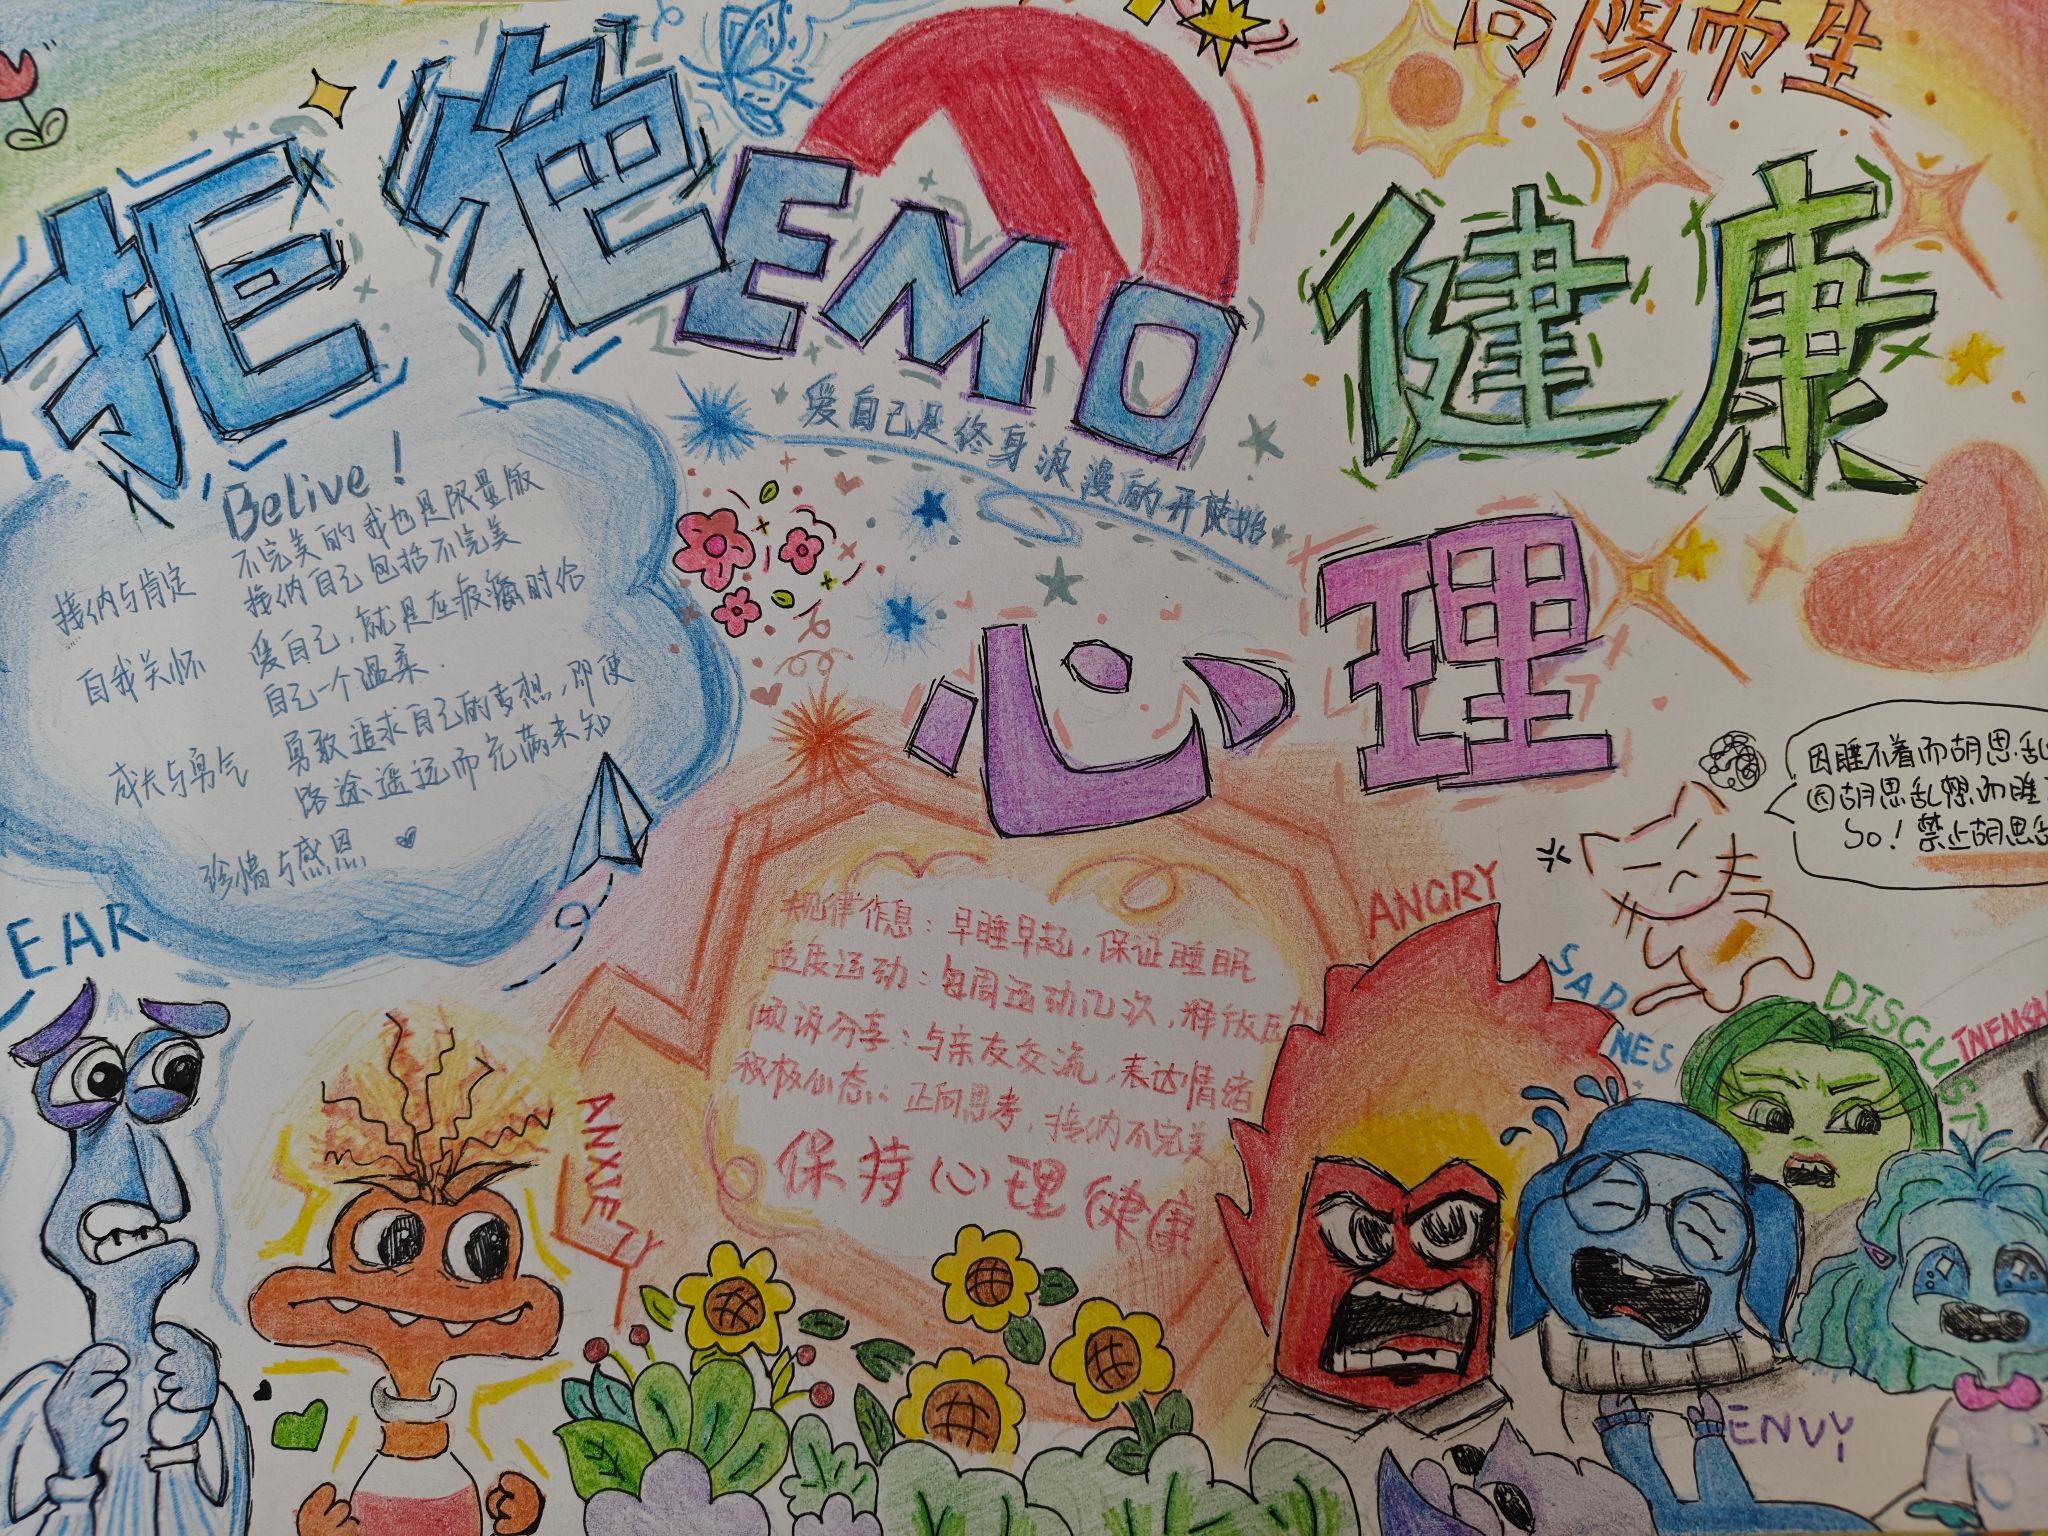 向阳而生
拒绝EMO
健康
心理
爱自己是终身浪漫的开始
Belive!
不完美的我也是限量版
接纳与肯定 接纳自己包括不完美
爱自己,就是在疲惫时给
自我关怀 自己一个温柔.
勇敢追求自己的梦想,即使
成长与勇气 路途遥远而充满未知
珍惜与感恩
因睡不着而胡思乱
因胡思乱想而睡
So!禁止胡思
规律作息:早睡早起,保证睡眠
适度运动:每周运动几次,释放压力
倾诉分享:与亲友交流,表达情绪
积极心态:正向思考,接纳不完美
保持心理健康
EAR
ANXIETY
ANGRY
SADNES
DISGUST
ENVY